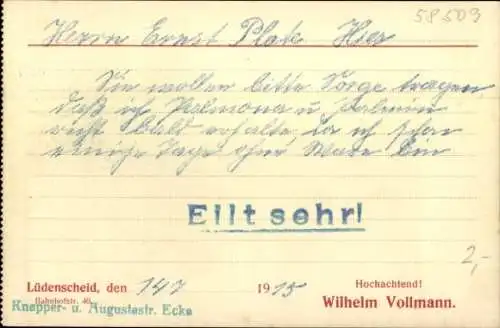 58503
Herrn Ernst Plate Hier
Sie wollen bitte Sorge tragen
daß ich Palmona u. Palmin
recht bald erhalte da ich schon
einige Tage ohne Ware bin
Eilt sehr!
2,-
Lüdenscheid, den 14 7 1915 Hochachtend!
Bahnhofstr. 40.
Knapper- u. Augustastr. Ecke Wilhelm Vollmann.